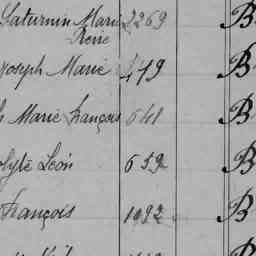 Saturnin Marie 2269 B
Pierre
Joseph Marie 449 B
Marie François 641 B
olyte Léon 659 B
François 1092 B